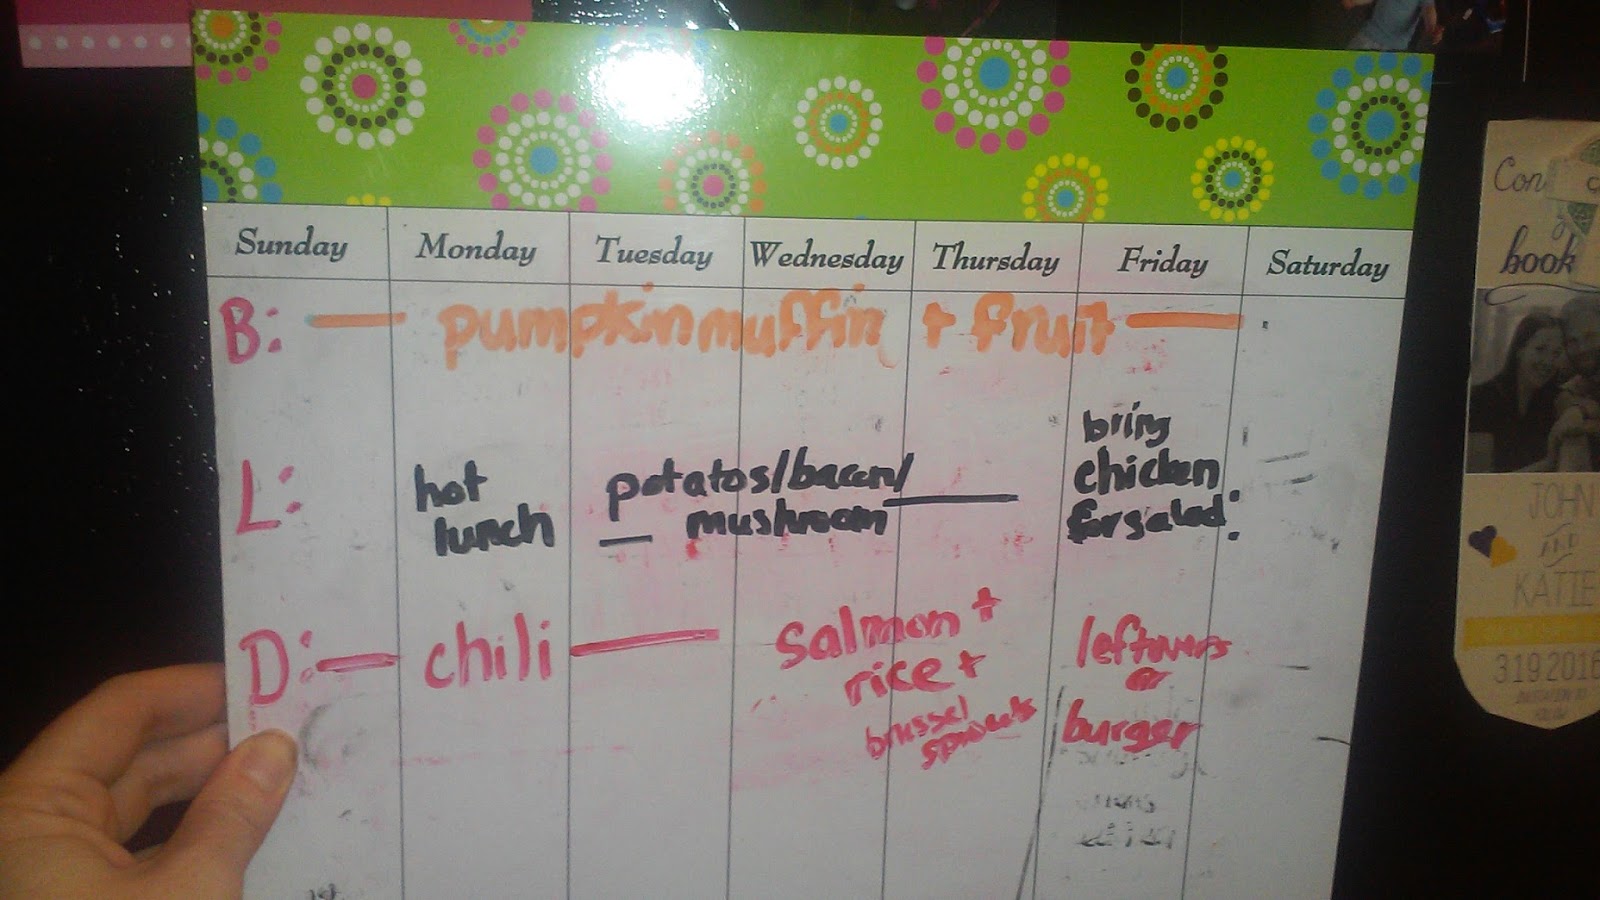 Sunday Monday Tuesday Wednesday Thursday Friday Saturday
B: pumpkin muffin + fruit
L:
hot
lunch
potatos/bacon/
mushroom
bring
chicken
for salad
D: chili
salmon +
rice +
brussel
sprouts
leftovers
or
burger
Con
book
JOHN
AND
KATIE
3192016